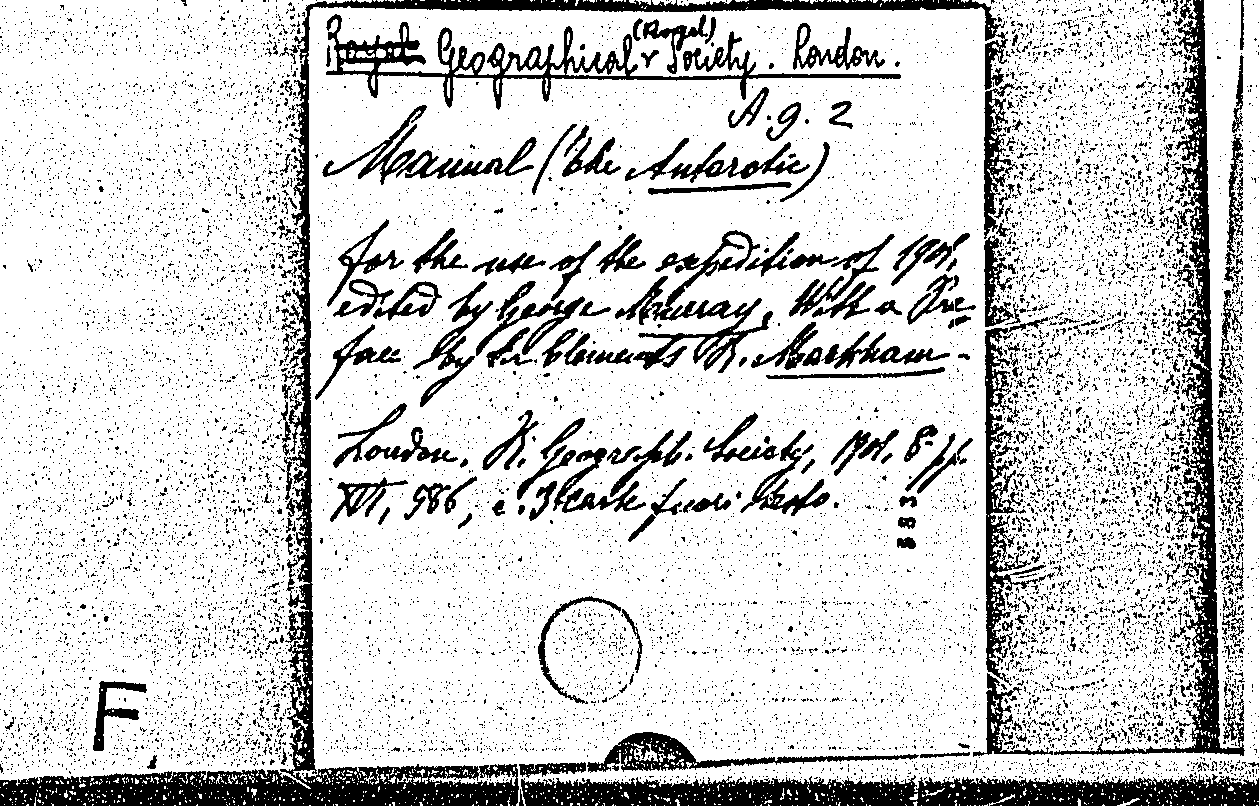 Royal Geographical (Royal) Society. London.
A.g. 2
Manual (The Antarctic)
for the use of the expedition of 1901,
edited by George Murray, With a Pre=
face by Sir Clements R. Markham -
London, R. Geograph. Society, 1901, 8° pp.
XVI, 586, c. 3 carte fuori testo.
883
F